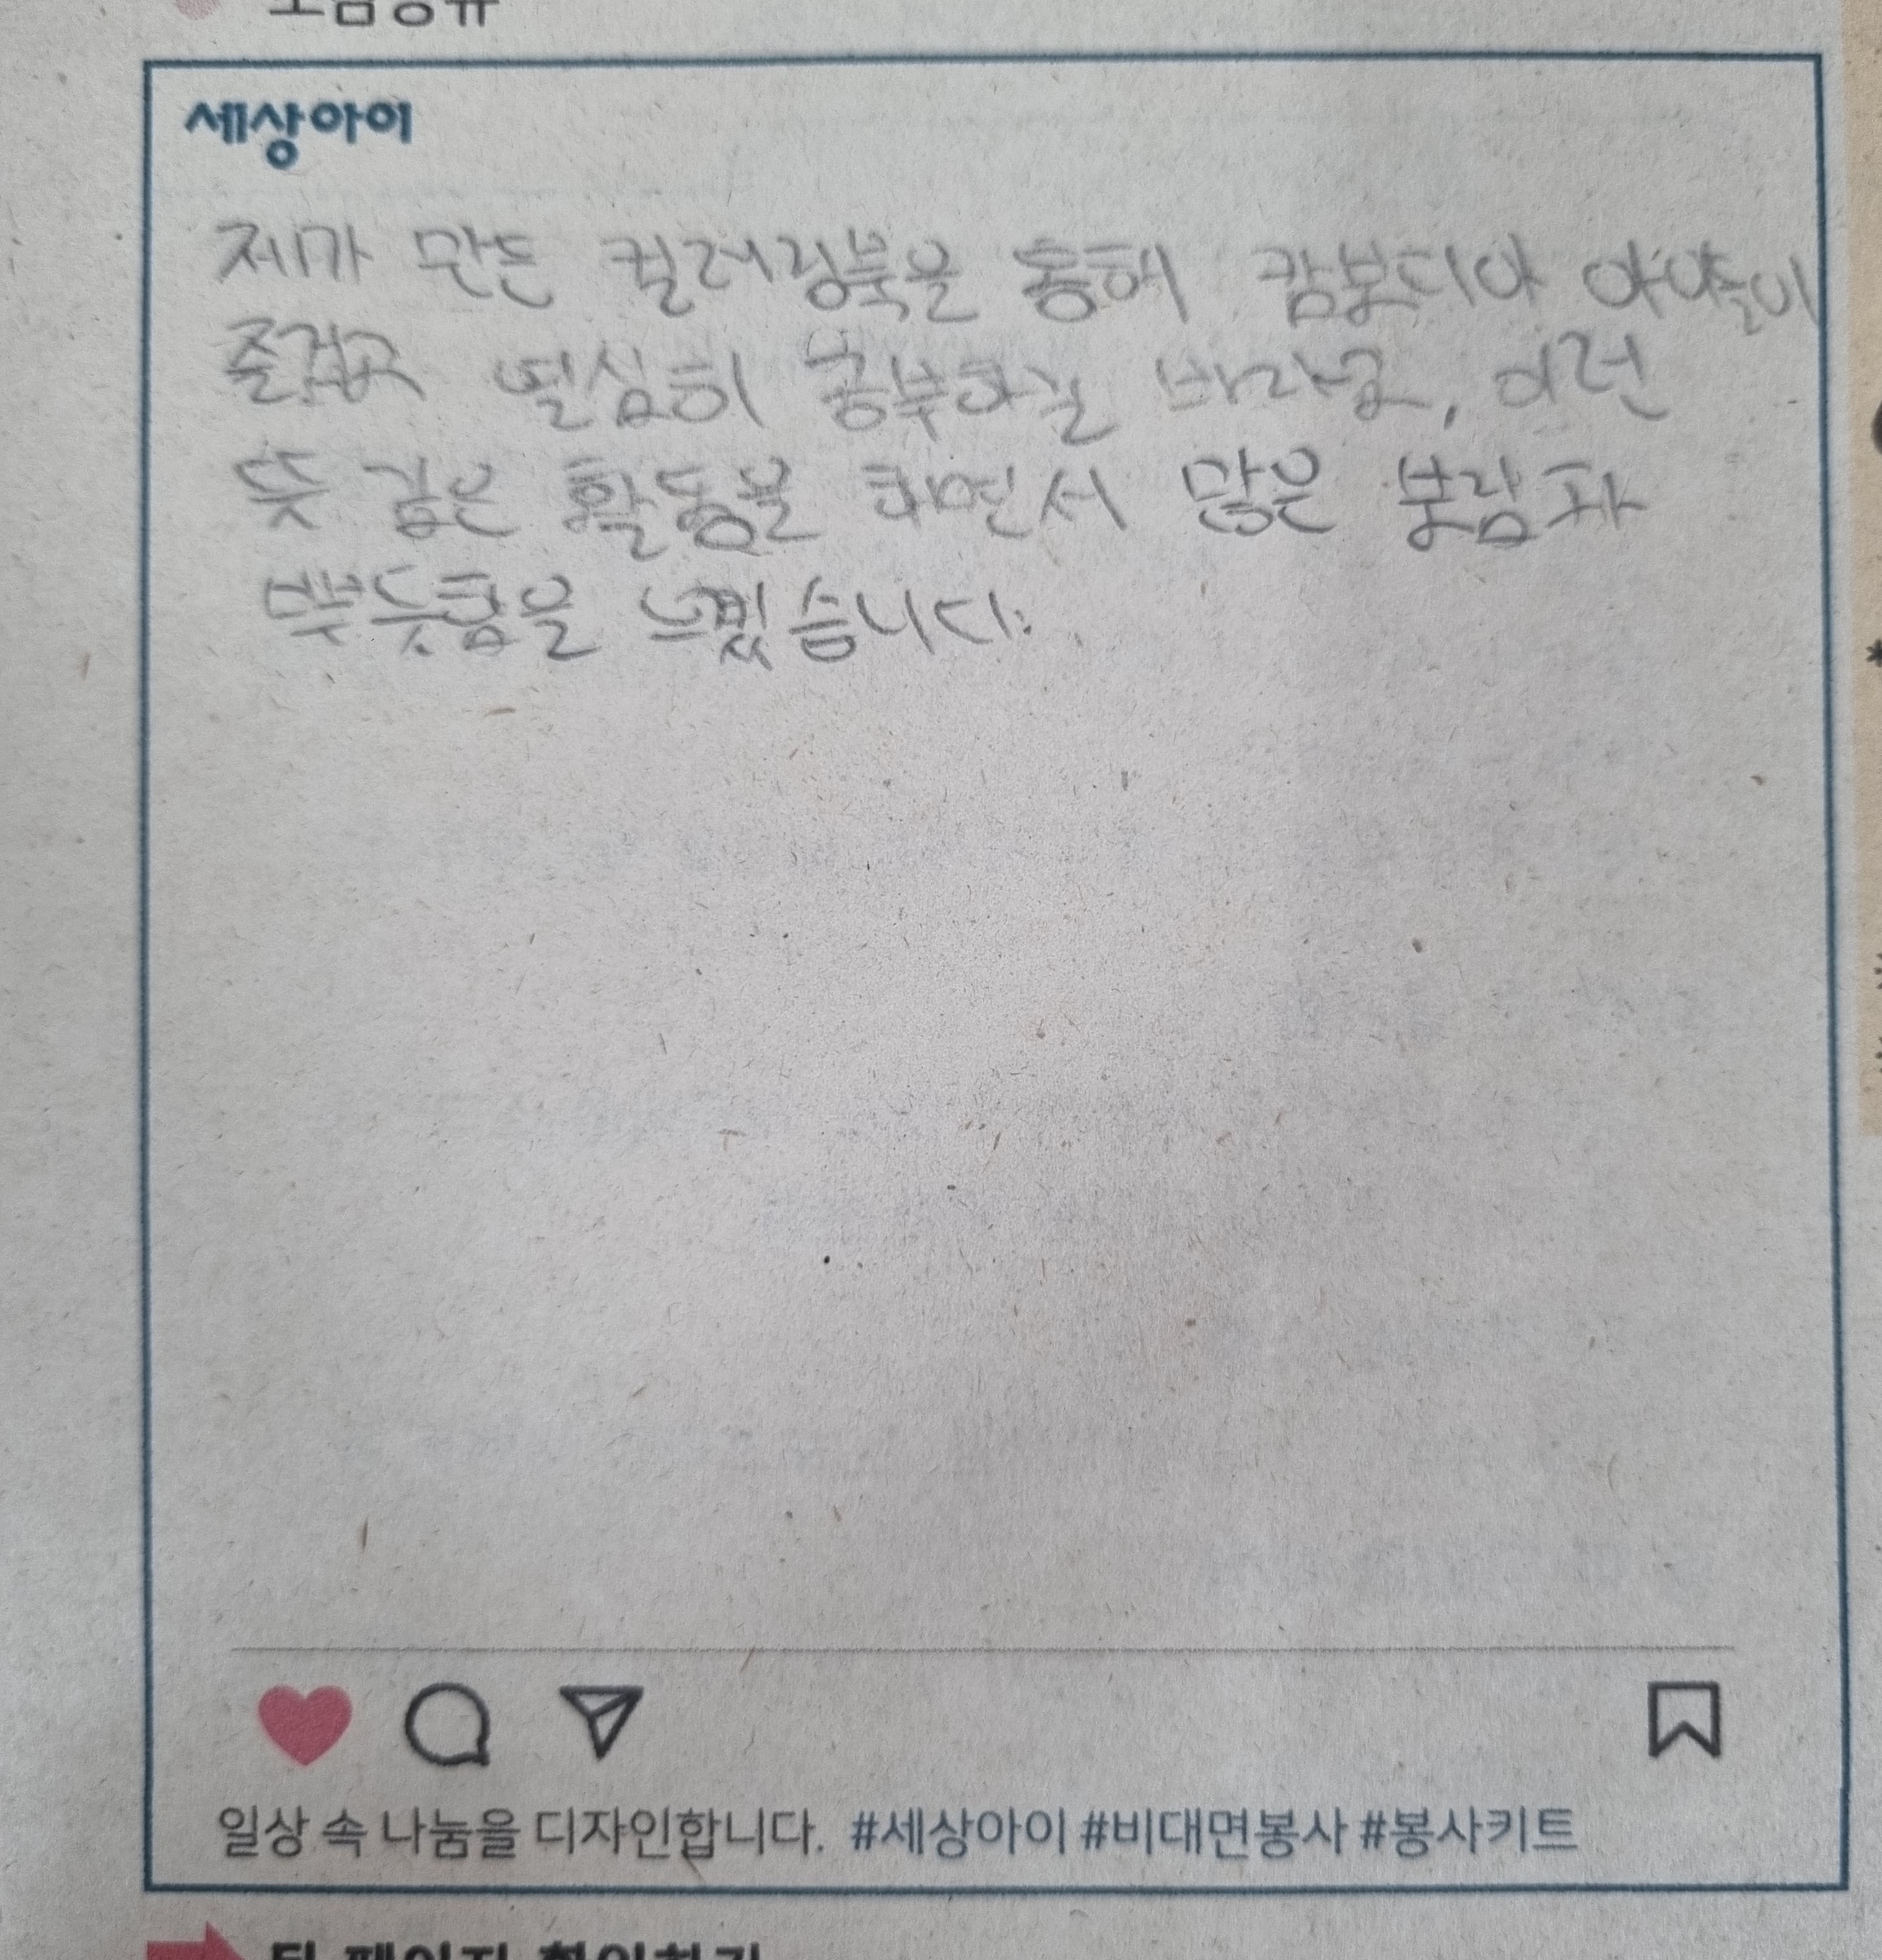 소감공유
세상아이
제가 만든 컬러링북을 통해 캄보디아 아이들이
즐겁고 열심히 공부하길 바라고, 이런
뜻 깊은 활동을 하면서 많은 보람과
뿌듯함을 느꼈습니다.
일상 속 나눔을 디자인합니다. #세상아이 #비대면봉사 #봉사키트
뒷 페이지 확인하기